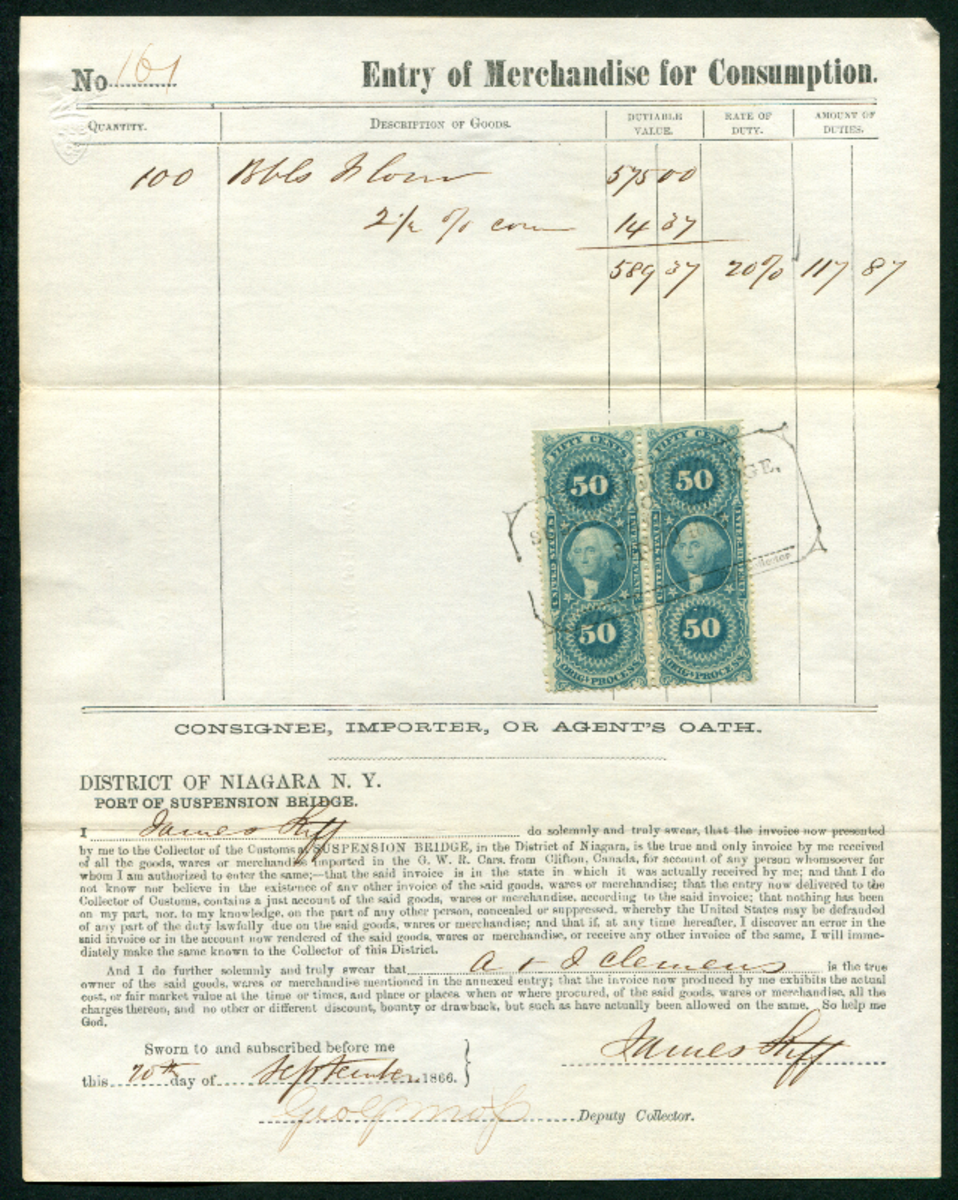 No 161 Entry of Merchandise for Consumption.
QUANTITY. DESCRIPTION OF GOODS. DUTIABLE VALUE. RATE OF DUTY. AMOUNT OF DUTIES.
100 Bbls Flour 575 00
2½ % com 14 37
589 37 20% 117 87
FIFTY CENTS FIFTY CENTS
50 50
GE.
UNITED STATES INTER. REVENUE UNITED STATES INTER. REVENUE
Collector
50 50
ORIG. PROCESS ORIG. PROCESS
CONSIGNEE, IMPORTER, OR AGENT'S OATH.
DISTRICT OF NIAGARA N. Y.
PORT OF SUSPENSION BRIDGE.
I James Stiff do solemnly and truly swear, that the invoice now presented
by me to the Collector of the Customs at SUSPENSION BRIDGE, in the District of Niagara, is the true and only invoice by me received
of all the goods, wares or merchandise imported in the G. W. R. Cars, from Clifton, Canada, for account of any person whomsoever for
whom I am authorized to enter the same;—that the said invoice is in the state in which it was actually received by me; and that I do
not know nor believe in the existence of any other invoice of the said goods, wares or merchandise; that the entry now delivered to the
Collector of Customs, contains a just account of the said goods, wares or merchandise, according to the said invoice; that nothing has been
on my part, nor, to my knowledge, on the part of any other person, concealed or suppressed, whereby the United States may be defrauded
of any part of the duty lawfully due on the said goods, wares or merchandise; and that if, at any time hereafter, I discover an error in the
said invoice or in the account now rendered of the said goods, wares or merchandise, or receive any other invoice of the same, I will imme-
diately make the same known to the Collector of this District.
And I do further solemnly and truly swear that A & J Clemens is the true
owner of the said goods, wares or merchandise mentioned in the annexed entry; that the invoice now produced by me exhibits the actual
cost, or fair market value at the time or times, and place or places when or where procured, of the said goods, wares or merchandise, all the
charges thereon, and no other or different discount, bounty or drawback, but such as have actually been allowed on the same. So help me
God.
James Stiff
Sworn to and subscribed before me
this 20th day of September 1866.
Deputy Collector.